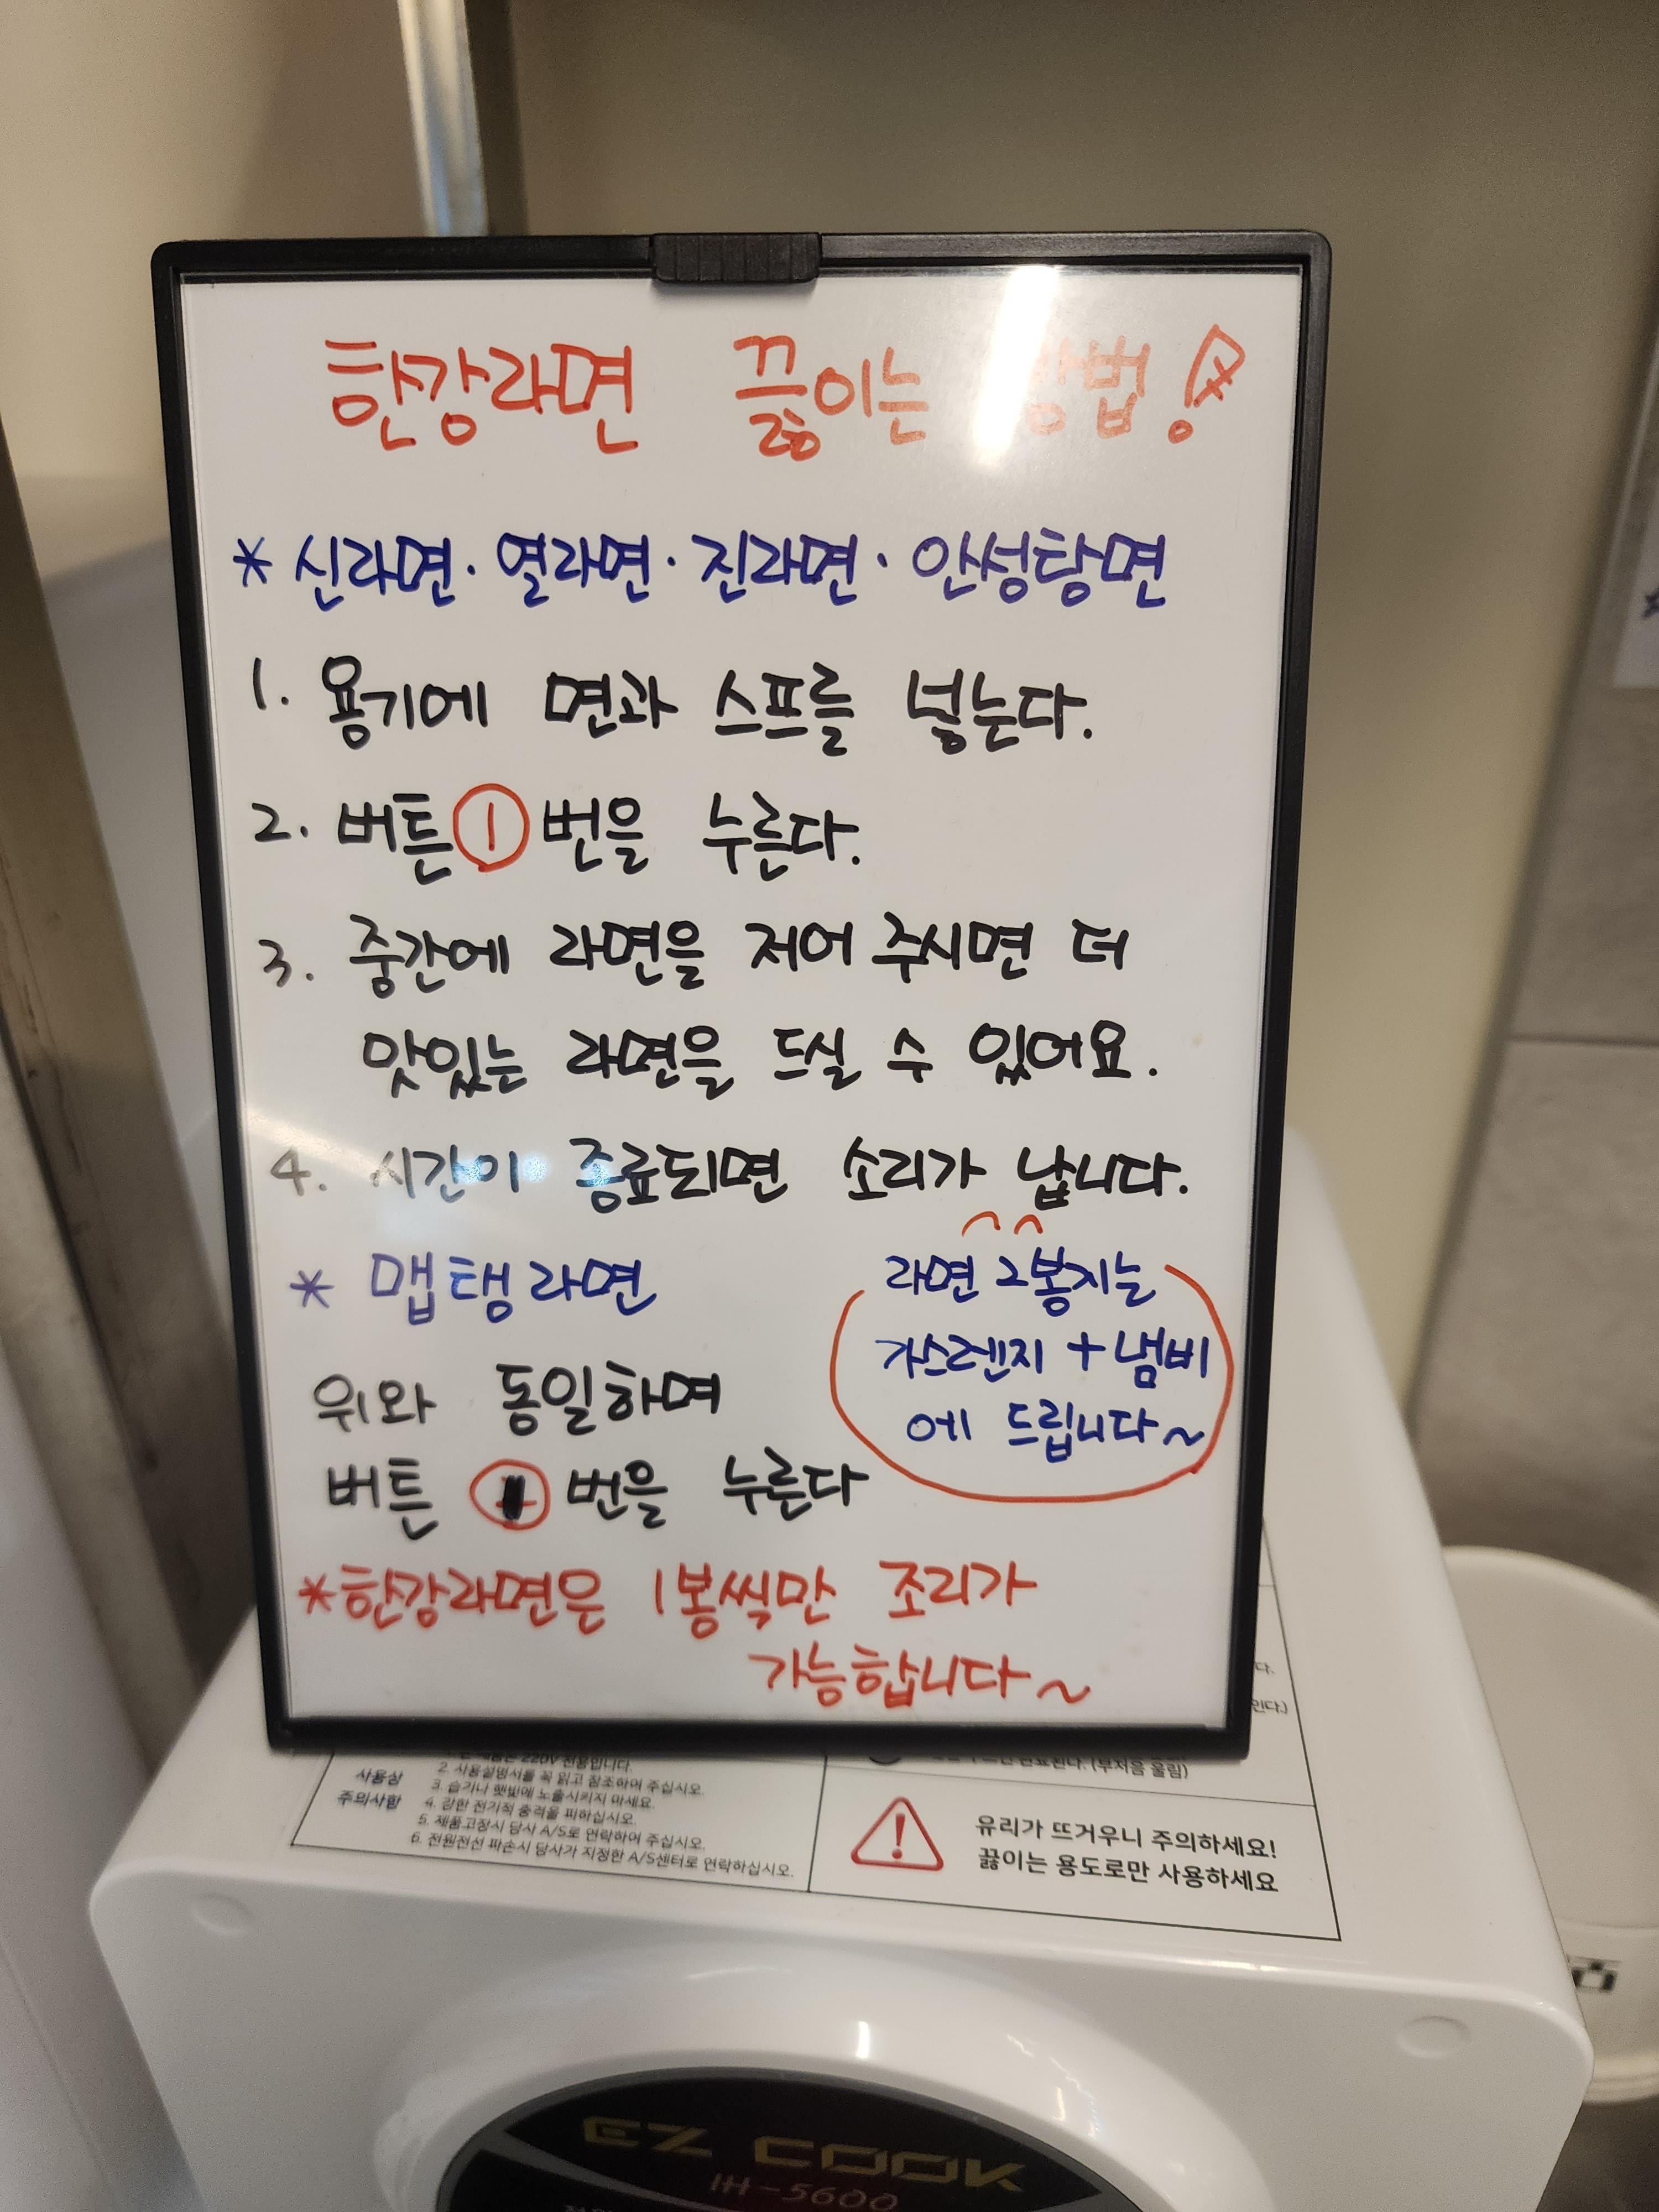 한강라면 끓이는 방법!
* 신라면 · 열라면 · 진라면 · 안성탕면
1. 용기에 면과 스프를 넣는다.
2. 버튼 ① 번을 누른다.
3. 중간에 라면을 저어 주시면 더
맛있는 라면을 드실 수 있어요.
4. 시간이 종료되면 소리가 납니다.
* 맵탱라면
위와 동일하며
버튼 번을 누른다
라면 2봉지는
가스렌지 + 냄비
에 드립니다~
*한강라면은 1봉씩만 조리가
가능합니다~
사용상
주의사항
220V 전용입니다.
2. 사용설명서를 꼭 읽고 참조하여 주십시오.
3. 습기나 햇빛에 노출시키지 마세요.
4. 강한 전기적 충격을 피하십시오.
5. 제품고장시 당사 A/S로 연락하여 주십시오.
6. 전원전선 파손시 당사가 지정한 A/S센터로 연락하십시오.
(부저음 울림)
유리가 뜨거우니 주의하세요!
끓이는 용도로만 사용하세요
EZ COOK
IH-5600